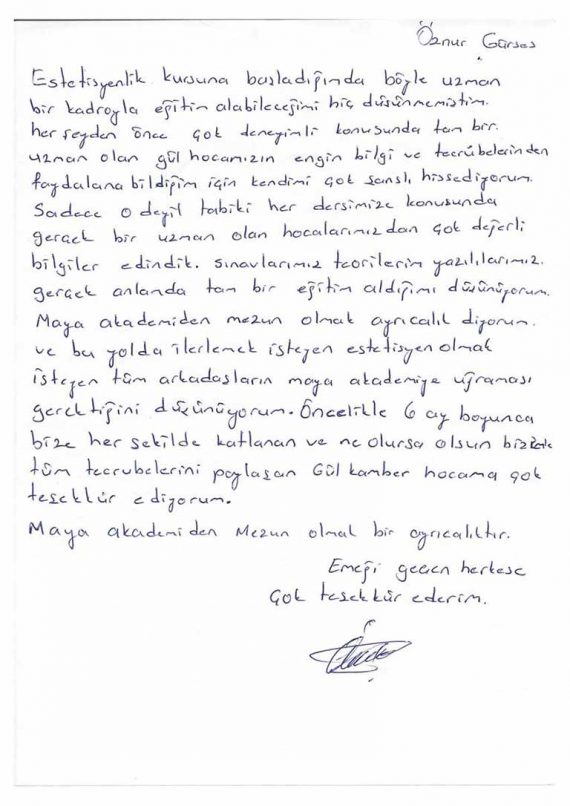 Öznur Gürses
Estetisyenlik kursuna başladığında böyle uzman
bir kadroyla eğitim alabileceğimi hiç düşünmemiştim.
her şeyden önce çok deneyimli konusunda tam bir
uzman olan gül hocamızın engin bilgi ve tecrübelerinden
faydalana bildiğim için kendimi çok şanslı hissediyorum.
Sadece o deyil tabiki her dersimize konusunda
gerçek bir uzman olan hocalarımızdan çok değerli
bilgiler edindik. sınavlarımız teorilerim yazılılarımız.
gerçek anlanda tam bir eğitim aldığımı düşünüyorum.
Maya akademiden mezun olmak ayrıcalık diyorum.
ve bu yolda ilerlemek isteyen estetisyen olmak
isteyen tüm arkadaşların maya akademiye uğraması
gerektiğini düşünüyorum. Öncelikle 6 ay boyunca
bize her şekilde katlanan ve ne olursa olsun bizlerle
tüm tecrubelerini paylaşan Gül kamber hocama çok
teşekkür ediyorum.
Maya akademiden Mezun olmak bir ayrıcalıktır.
Emeği geçen herkese
Çok teşekkür ederim.